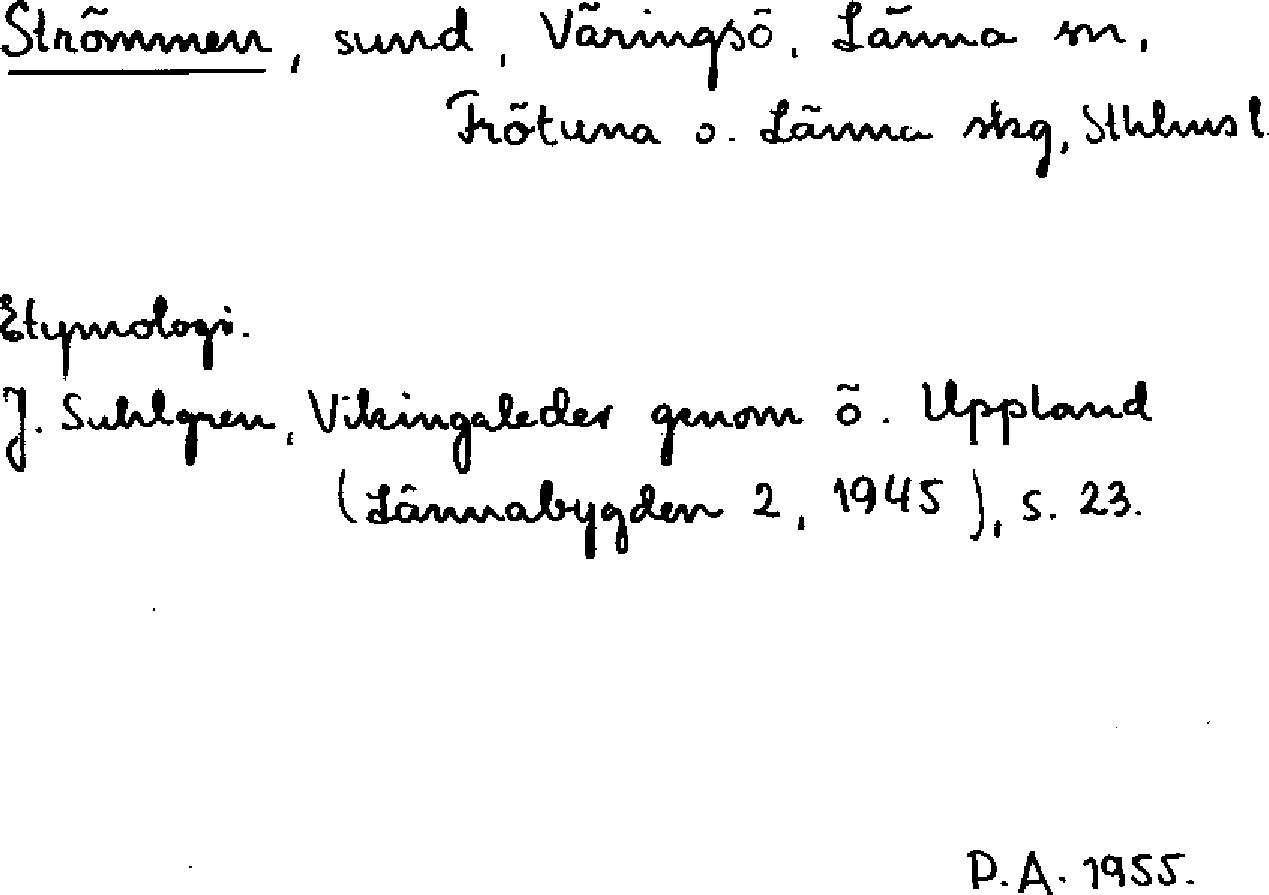 Strömmen, sund, Väringsö, Länna sn,
Frötuna o. Länna skg, Sthlms l.
Etymologi.
J. Sahlgren, Vikingaleder genom ö. Uppland
(Lännabygden 2, 1945), s. 23.
P.A. 1955.